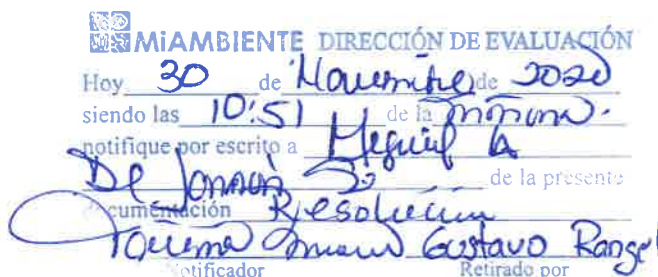 MiAMBIENTE DIRECCIÓN DE EVALUACIÓN
Hoy 30 de Noviembre de 2020
siendo las 10:51 de la mañana.
notifique por escrito a
De de la presente
documentación Resolución
Gustavo Rangel
Notificador Retirado por